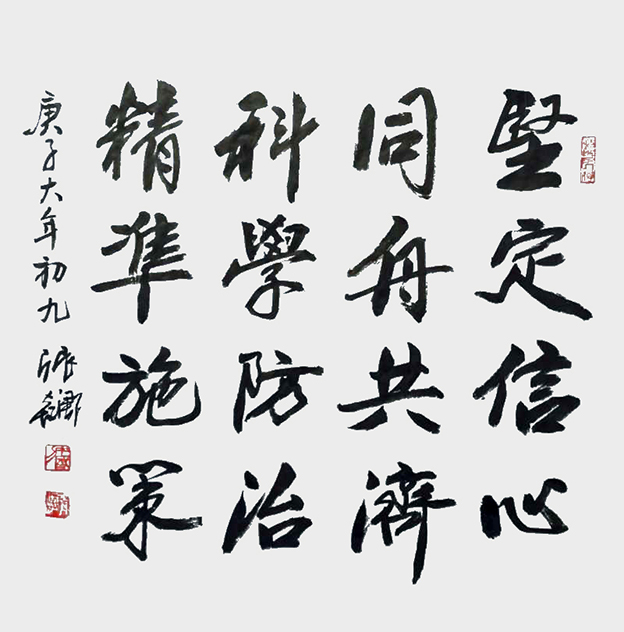 堅定信心
同舟共濟
科學防治
精準施策
庚子大年初九